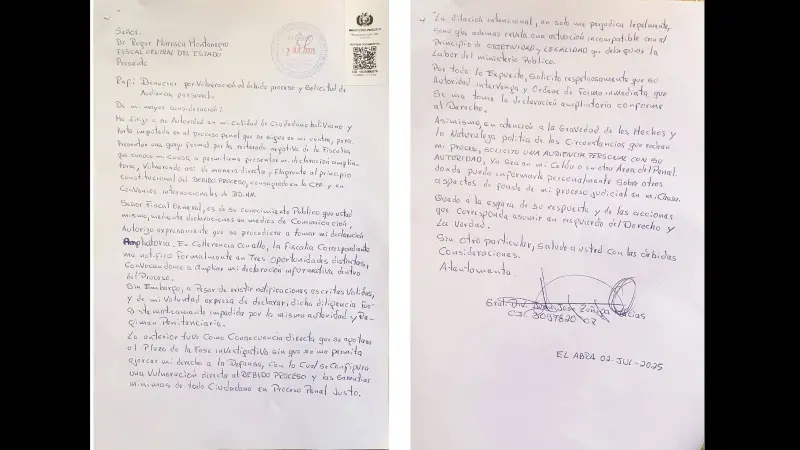 Señor:
Dr. Roger Mariaca Montenegro
FISCAL GENERAL DEL ESTADO
Presente
Ref: Denuncia por Vulneración al debido proceso y Solicitud de
Audiencia personal.
De mi mayor consideración:
Me dirijo a su Autoridad en mi calidad de Ciudadano boliviano y
Parte imputada en el proceso penal que se sigue en mi contra, para
Presentar una queja formal por la reiterada negativa de la Fiscalía
que conoce mi causa, a permitirme presentar mi declaración amplia-
toria, Vulnerando así de manera directa y flagrante al principio
constitucional del DEBIDO PROCESO, consagrado en la CPE y en
Convenios internacionales de DD.HH.
Señor Fiscal General, es de su conocimiento Publico que usted
mismo, mediante declaraciones en medios de Comunicación,
Autorizo expresamente que se procediera a tomar mi declaración
Ampliatoria. En Coherencia con ello, la Fiscalía Correspondiente
me notificó formalmente en Tres oportunidades distintas,
Convocandome a ampliar mi declaración informativa dentro
del Proceso.
Sin Embargo, a Pesar de existir notificaciones escritas Validas,
y de mi Voluntad expresa de declarar, dicha diligencia Fue
Sistematicamente impedida por la misma autoridad y Re-
gimen Penitenciario.
Lo anterior tuvo como Consecuencia directa que se agotara
el Plazo de la Fase investigativa sin que se me permita
ejercer mi derecho a la Defensa, con lo Cual se Configura
una Vulneración directa al DEBIDO PROCESO y las Garantias
minimas de todo Ciudadano en Proceso Penal Justo.
La dilación intencional, no solo me perjudica legalmente,
sino que ademas revela una actuación incompatible con el
Principio de OBJETIVIDAD y LEGALIDAD que debe guiar la
Labor del ministerio Público.
Por todo lo Expuesto, Solicito respetuosamente que su
Autoridad intervenga y Ordene de Forma inmediata que
Se me tome la declaración ampliatoria conforme
al Derecho.
Asimismo, en atención a la Gravedad de los Hechos y
la Naturaleza politica de las Circunstancias que rodean
mi proceso, SOLICITO UNA AUDIENCIA PERSONAL CON SU
AUTORIDAD, Ya sea en mi Celda o en otra Area del Penal.
donde pueda informarle personalmente Sobre otros
aspectos de fondo de mi proceso judicial en mi Causa.
Quedo a la espera de su respuesta y de las acciones
que corresponda asumir en resguardo del Derecho y
La Verdad.
Sin otro particular, saludo a usted con las debidas
Consideraciones.
Atentamente
Gral. Div. Juan José Zúñiga Macias
EL ABRA 02-JUL-2025